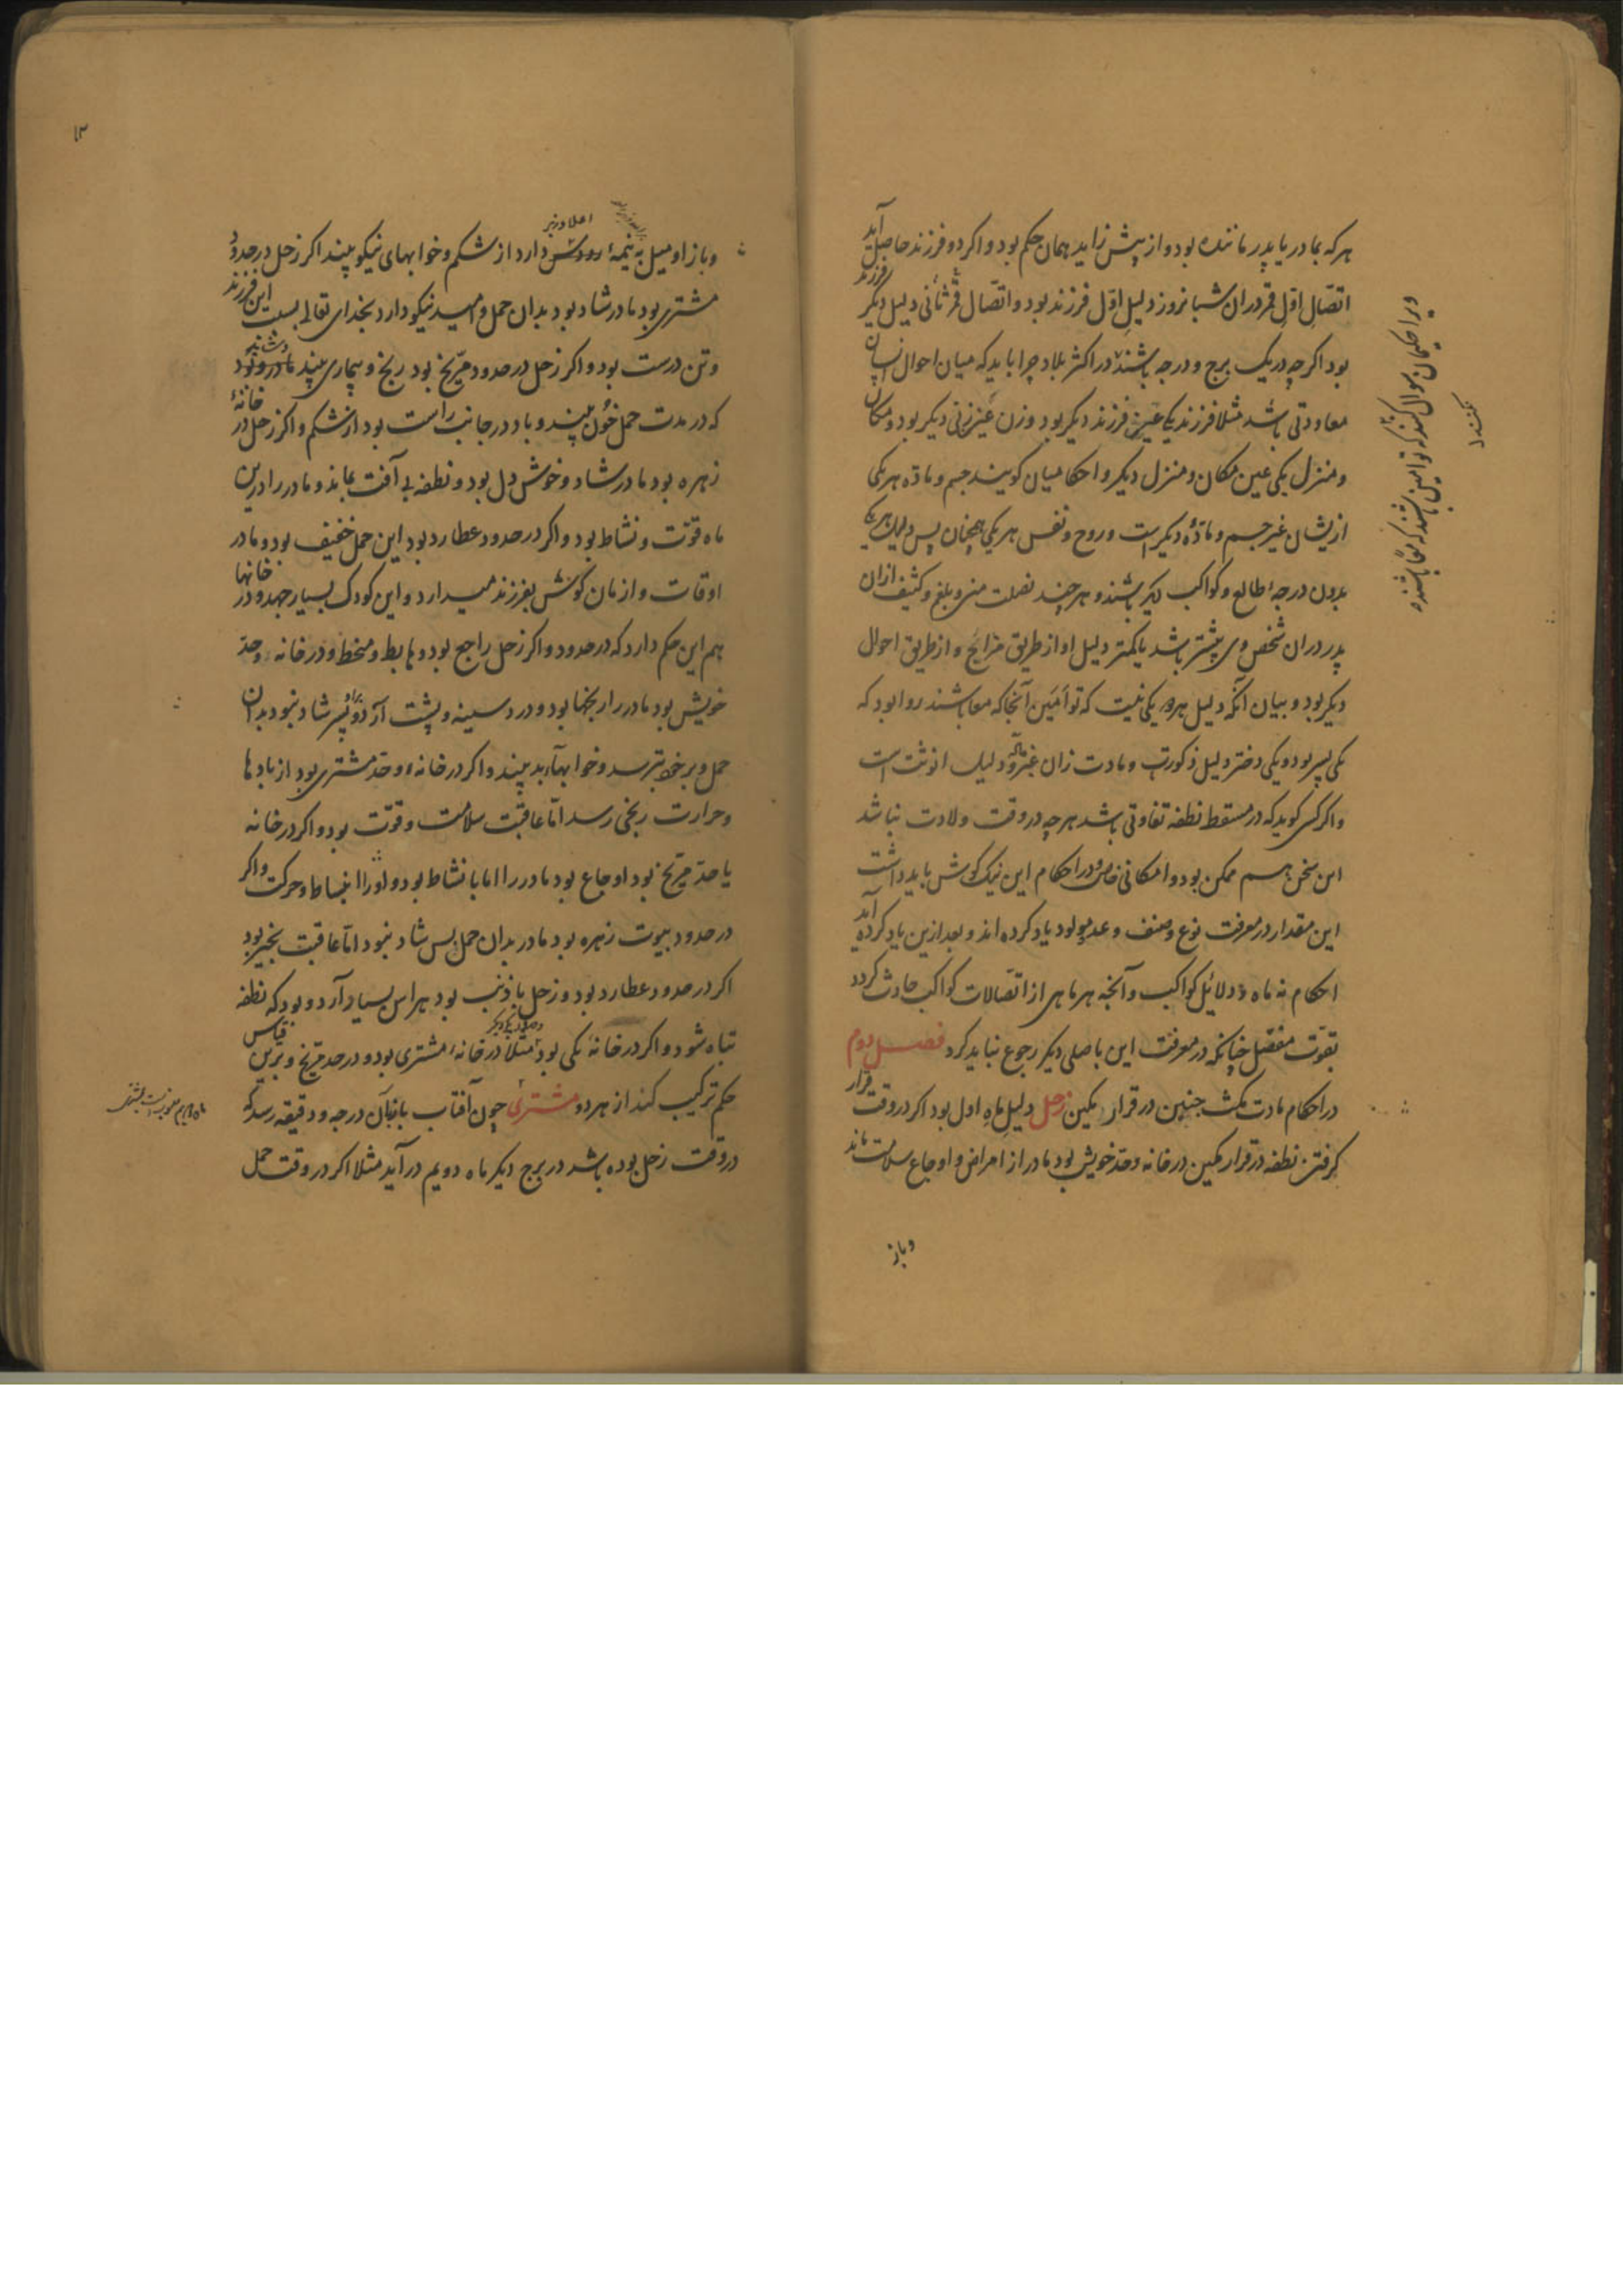 هرکه بمادر یا پدر ماننده بود و از پیش زاید همان حکم بود و اکر دو فرزند حاصل آید
اتصال اول قمر دران شبانروز دلیل اول فرزند بود و اتصال قمر ثانی دلیل دیکر فرزند
بود اکر چه در یک برج و درجه باشند در اکثر بلاد چرا باید که میان احوال ایشان
معاودتی باشد مثلا فرزند یکی عین فرزند دیکر بود و زن عین زن دیکر بود و مکان
و منزل یکی عین مکان و منزل دیکر و احکامیان کویند جسم و ماده هر یکی
ازیشان غیر جسم و مادّه دیکر است و روح و نفس هر یکی همچنان پس دلیل هر یکی
بدون درجه طالع و کواکب دیکر باشند و هر چند فضلت منی و بلغم و کثیف ازان
پدر دران شخص وی بیشتر باشد یا کمتر دلیل او از طریق مزایج و از طریق احوال
دیکر بود و بیان آنکه دلیل هر دو یکی نیست که توأمین آنجا که معا باشند روا بود که
یکی پسر بود و یکی دختر دلیل ذکورت و مادت زان غیر دلیل انوثت است
و اکر کسی کوید که در مسقط نطفه تفاوتی باشد هر چه در وقت ولادت نباشد
این سخن هم ممکن بود و امکانی خاص و در احکام این نیک کوش باید داشت
این مقدار در معرفت نوع و صنف و عدد مولود یاد کرده اند و بعد ازین یاد کرده آید
احکام نه ماه و دلائل کواکب و آنچه هر ماهی از اتصالات کواکب حادث کردد
بقوت مفصل چنانکه در معرفت این باصلی دیکر رجوع نباید کرد فصل دوم
در احکام مادت مکث جنین در قرار مکین زحل دلیل ماه اول بود اکر در وقت قرار
کرفتن نطفه در قرار مکین در خانه وحد خویش بود مادر از امراض و اوجاع سلامت ماند
و باز
و باز او میل به نیمهٔ دارد از شکم و خوابهای نیکو بیند اکر زحل در حدود
مشتری بود مادر شاد بود بدان حمل و امید نیکو دارد بخدای تعالی بسبب این فرزند
و تن درست بود و اکر زحل در حدود مریخ بود رنج و بیماری بیند مادر
که در مدت حمل خون بیند و باد در جانب راست بود از شکم و اکر زحل در خانهٔ
زهره بود مادر شاد و خوش دل بود و نطفه بی آفت بماند و مادر را درین
ماه قوت و نشاط بود و اکر در حدود عطارد بود این حمل خفیف بود و مادر
اوقات و ازمان کوشش بفرزند میدارد و این کودک بسیار جهد و در خانها
هم این حکم دارد که در حدود و اکر زحل راجع بود و هابط و منحط و در خانه وحد
خویش بود مادر را رنجها بود و درد سینه و پشت آرد و شاد نبود بدان
حمل و بر خود بترسد و خوابهاء بد بیند و اکر در خانه و حد مشتری بود از بادها
و حرارت رنجی رسد امّا عاقبت سلامت و قوّت بود و اکر در خانه
یا حد مریخ بود اوجاع بود مادر را اما با نشاط بود و او را انبساط و حرکت و اکر
در حدود بیوت زهره بود مادر بدان حمل بس شاد نبود امّا عاقبت بخیر بود
اکر در حدود عطارد بود و زحل با ذنب بود هراس بسیار آرد و بود که نطفه
تباه شود و اکر در خانهٔ یکی بود مثلا در خانهٔ مشتری بود و در حد مریخ و برین قیاس
حکم ترکیب کند از هر دو مشتری چون آفتاب باز بآن درجه و دقیقه رسد که
در وقت زحل بوده باشد در برج دیکر ماه دویم در آید مثلا اکر در وقت حمل